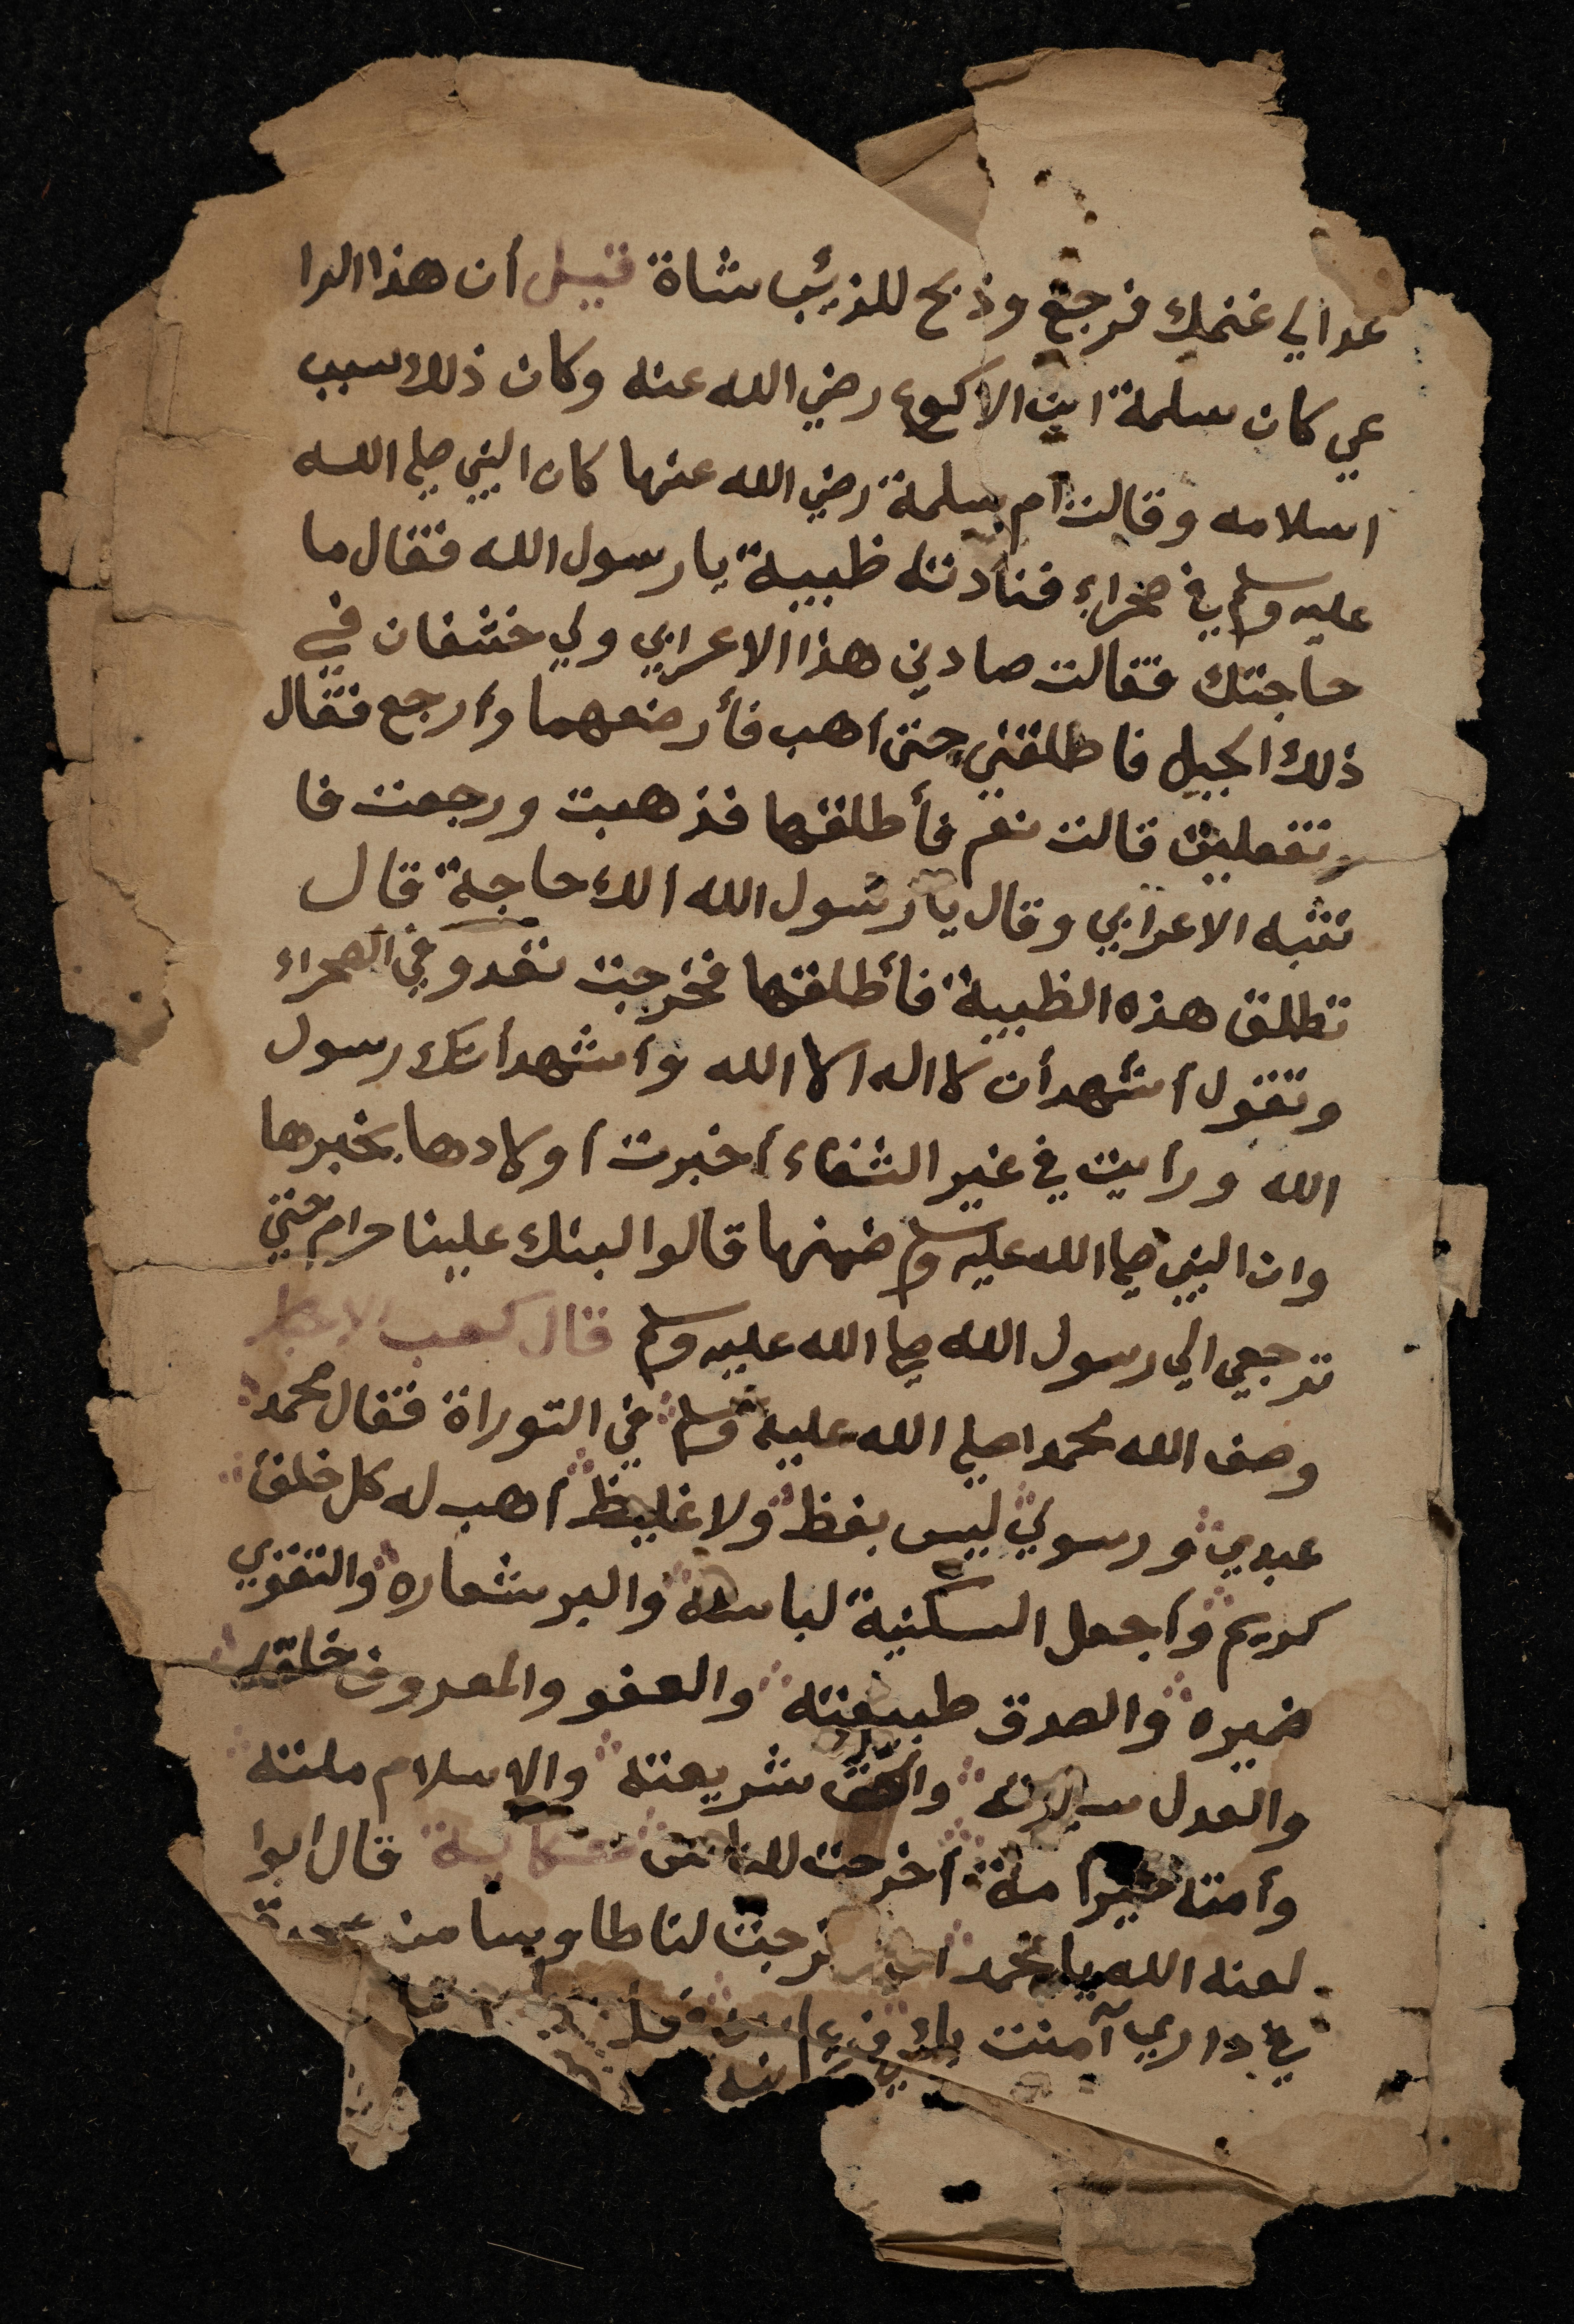 عد الي غنمك فرجع وذبح للذيئب شاة قيل أن هذا الرا
عي كان سلمة ابن الاكوع رضي الله عنه وكان ذلك سبب
اسلامه وقالت ام سلمة رضي الله عنها كان النبي صلي الله
عليه وسلم في صحراء فنادته ظبية يا رسول الله فقال ما
حاجتك فقالت صادني هذا الاعرابي ولي خشفان في
ذلك الجبل فاطلقني حتى اهب فأرضعهما وأرجع فقال
وتفعلين قالت نعم فأطلقها فذهبت ورجعت فا
نتبه الاعرابي وقال يا رسول الله الك حاجة قال
تطلق هذه الظبية فأطلقها فخرجت تغدو في الصحراء
وتقول اشهد أن لا اله الا الله واشهد أنك رسول
الله ورأيت في غير الشفاء اخبرت اولادها بخبرها
وان النبي صلى الله عليه وسلم ضمنها قالوا لبنك علينا حرام حتي
ترجعي الي رسول الله صلى الله عليه وسلم قال كعب الاحبار
وصف الله محمدا صلي الله عليه وسلم في التوراة فقال محمد
عبدي ورسولي ليس بفظ ولا غليظ اهب له كل خلق
كريم واجعل السكنية لباسه والبر شعاره والتقوي
ضميره والصدق طبيعته والعفو والمعروف خلقه
والعدل سيرته والحق شريعته والاسلام ملته
وأمته خير امة أخرجت للناس حكاية قال ابوا
لعنه الله يا محمد ان خرجت لنا طاوسا من
في داري آمنت بك